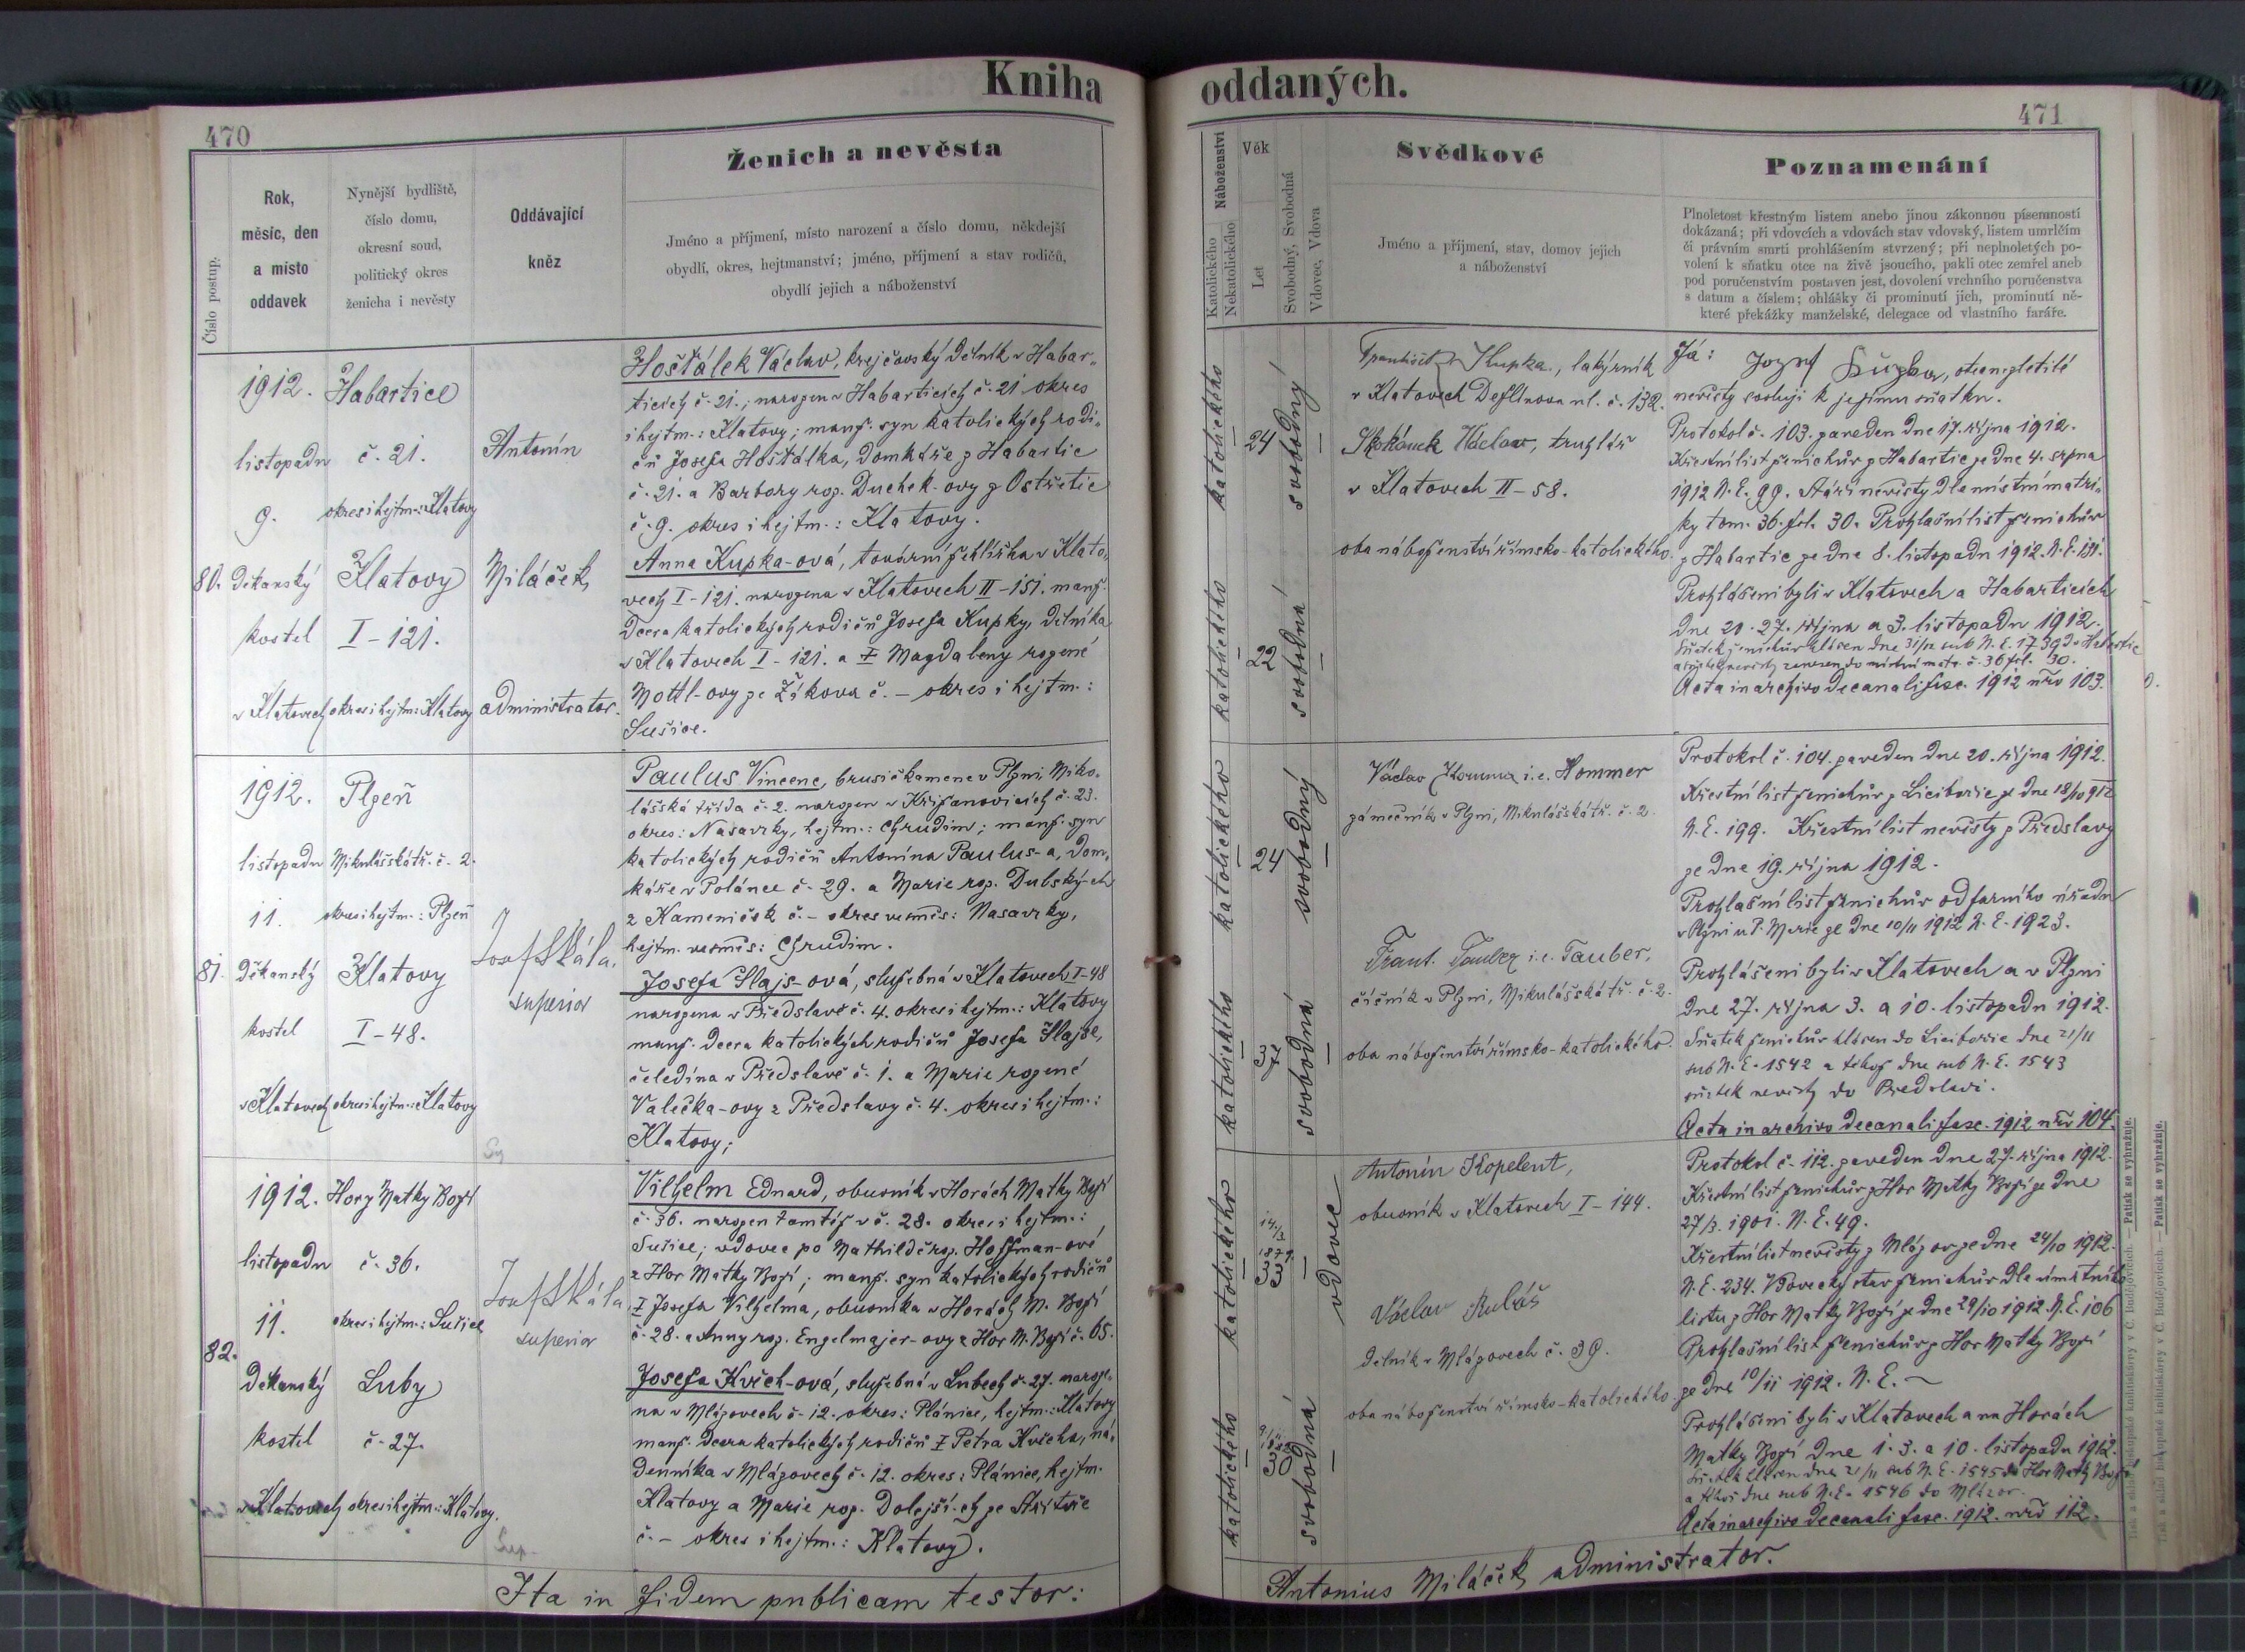 Kniha oddaných.
470
471
Číslo postup.
Rok,
měsíc, den
a místo
oddavek
Nynější bydliště,
číslo domu,
okresní soud,
politický okres
ženicha i nevěsty
Oddávající
kněz
Ženich a nevěsta
Jméno a příjmení, místo narození a číslo domu, někdejší
obydlí, okres, hejtmanství; jméno, příjmení a stav rodičů,
obydlí jejich a náboženství
Náboženství
Katolického
Nekatolického
Věk
Let
Svobodný, Svobodná
Vdovec, Vdova
Svědkové
Jméno a příjmení, stav, domov jejich
a náboženství
Poznamenání
Plnoletost křestným listem anebo jinou zákonnou písemností
dokázaná; při vdovcích a vdovách stav vdovský, listem umrlčím
či právním smrti prohlášením stvrzený; při neplnoletých po-
volení k sňatku otce na živě jsoucího, pakli otec zemřel aneb
pod poručenstvím postaven jest, dovolení vrchního poručenstva
s datum a číslem; ohlášky či prominutí jich, prominutí ně-
které překážky manželské, delegace od vlastního faráře.
80.
1912.
listopadu
9.
děkanský
kostel
v Klatovech
Habartice
č. 21.
okres i hejtm.: Klatovy
Klatovy
I-121.
okres i hejtm.: Klatovy
Antonín
Miláček,
administrator.
Hošťálek Václav, krejčovský dělník v Habar„
ticích č. 21.; narozen v Habarticích č. 21 okres
i hejtm.: Klatovy; manž. syn katolických rodi„
čů Josefa Hošťálka, domkáře z Habartic
č. 21. a Barbory roz. Duchek-ovy z Ostřetic
č. 9. okres i hejtm.: Klatovy.
Anna Kupka-ová, tovární žehlířka v Klato„
vech I-121. narozena v Klatovech II-151. manž.
dcera katolických rodičů Josefa Kupky, dělníka
v Klatovech I-121. a † Magdaleny rozené
Mottl-ovy ze Žíkova č. – okres i hejtm.:
Sušice.
katolického
24
svobodný
katolického
22
svobodná
František Kupka, lakýrník
v Klatovech Deflínova ul. č. 132.
Skokánek Václav, truhlář
v Klatovech II-58.
oba náboženství římsko-katolického.
Já: Jozef Kupka, otec nezletilé
nevěsty svoluji k jejímu sňatku.
Protokol č. 103. zaveden dne 17. října 1912.
Křestní list ženichův z Habartic ze dne 4. srpna
1912 N. E. 99. Stáří nevěsty dle místní matri„
ky tom. 36. fol. 30. Prohlašní list ženichův
z Habartic ze dne 8. listopadu 1912. N. E. 131.
Prohlášeni byli v Klatovech a Habarticích
dne 20. 27. října a 3. listopadu 1912.
Acta in archivo decanali fasc. 1912 nro 103.
81.
1912.
listopadu
11.
děkanský
kostel
v Klatovech
Plzeň
Mikulášská tř. č. 2.
okres i hejtm.: Plzeň
Klatovy
I-48.
okres i hejtm.: Klatovy
Josef Skála,
superior
Paulus Vincenc, brusič kamene v Plzni, Miku„
lášská třída č. 2. narozen v Križanovicích č. 23.
okres: Nasavrky, hejtm.: Chrudim; manž. syn
katolických rodičů Antonína Paulus-a, dom„
káře v Polánce č. 29. a Marie roz. Dubský-ch
z Kameniček č. – okres vesměs: Nasavrky,
hejtm. vesměs: Chrudim.
Josefa Hlajs-ová, služebná v Klatovech I-48
narozena v Předslavě č. 4. okres i hejtm.: Klatovy
manž. dcera katolických rodičů Josefa Hlajse,
čeledína v Předslavě č. 1. a Marie rozené
Valečka-ovy z Předslavy č. 4. okres i hejtm.:
Klatovy;
katolického
24
svobodný
katolického
37
svobodná
Václav Hommer i. e. Hommer
zámečník v Plzni, Mikulášská tř. č. 2.
Frant. Tauber i. e. Tauber,
číčník v Plzni, Mikulášská tř. č. 2.
oba náboženství římsko-katolického.
Protokol č. 104. zaveden dne 20. října 1912.
Křestní list ženichův z Licibořic ze dne 18/10 912
N. E. 199. Křestní list nevěsty z Předslavy
ze dne 19. října 1912.
Prohlašní list ženichův od farního úřadu
v Plzni u P. Marie ze dne 10/11 1912 N. E. 1923.
Prohlášeni byli v Klatovech a v Plzni
dne 27. října 3. a 10. listopadu 1912.
Sňatek ženichův hlášen do Licibořic dne 21/11
sub N. E. 1542 a téhož dne sub N. E. 1543
sňatek nevěsty do Předslavi.
Acta in archivo decanali fasc. 1912 nro 104.
82.
1912.
listopadu
11.
děkanský
kostel
v Klatovech
Hory Matky Boží
č. 36.
okres i hejtm.: Sušice
Luby
č. 27.
okres i hejtm.: Klatovy.
Josef Skála,
superior
Vilhelm Eduard, obuvník v Horách Matky Boží
č. 36. narozen tamtéž v č. 28. okres i hejtm.:
Sušice; vdovec po Mathildě roz. Hoffman-ové
z Hor Matky Boží; manž. syn katolických rodičů
† Josefa Vilhelma, obuvníka v Horách M. Boží
č. 28. a Anny roz. Engelmajer-ovy z Hor M. Boží č. 65.
Josefa Kvěch-ová, služebná v Lubech č. 27. naroze„
na v Mlázovech č. 12. okres: Plánice, hejtm.: Klatovy
manž. dcera katolických rodičů † Petra Kvěcha, ná„
denníka v Mlázovech č. 12. okres: Plánice, hejtm.
Klatovy a Marie roz. Dolejší-ch ze
č. – okres i hejtm.: Klatovy.
katolického
14./3
1879.
33
vdovec
katolického
30
svobodná
Antonín Kopelent,
obuvník v Klatovech I-144.
Václav
dělník v Mlázovech č. 39.
oba náboženství římsko-katolického.
Protokol č. 112. zaveden dne 27. října 1912.
Křestní list ženichův z Hor Matky Boží ze dne
27/3. 1901. N. E. 49.
Křestní list nevěsty z Mlázov ze dne 24/10 1912.
N. E. 234. Vdovecký stav ženichův dle úmrtního
listu z Hor Matky Boží ze dne 29/10 1912. N. E. 106
Prohlašní list ženichův z Hor Matky Boží
ze dne 10/11 1912. N. E. ~
Prohlášeni byli v Klatovech a na Horách
Matky Boží dne 1. 3. a 10. listopadu 1912.
Sňatek hlášen dne 21/11 sub N. E. 1545 do Hor Matky Boží
a téhož dne sub N. E. 1546 do Mlázov.
Acta in archivo decanali fasc. 1912. nro 112.
Ita in fidem publicam testor:
Antonius Miláček, administrator.